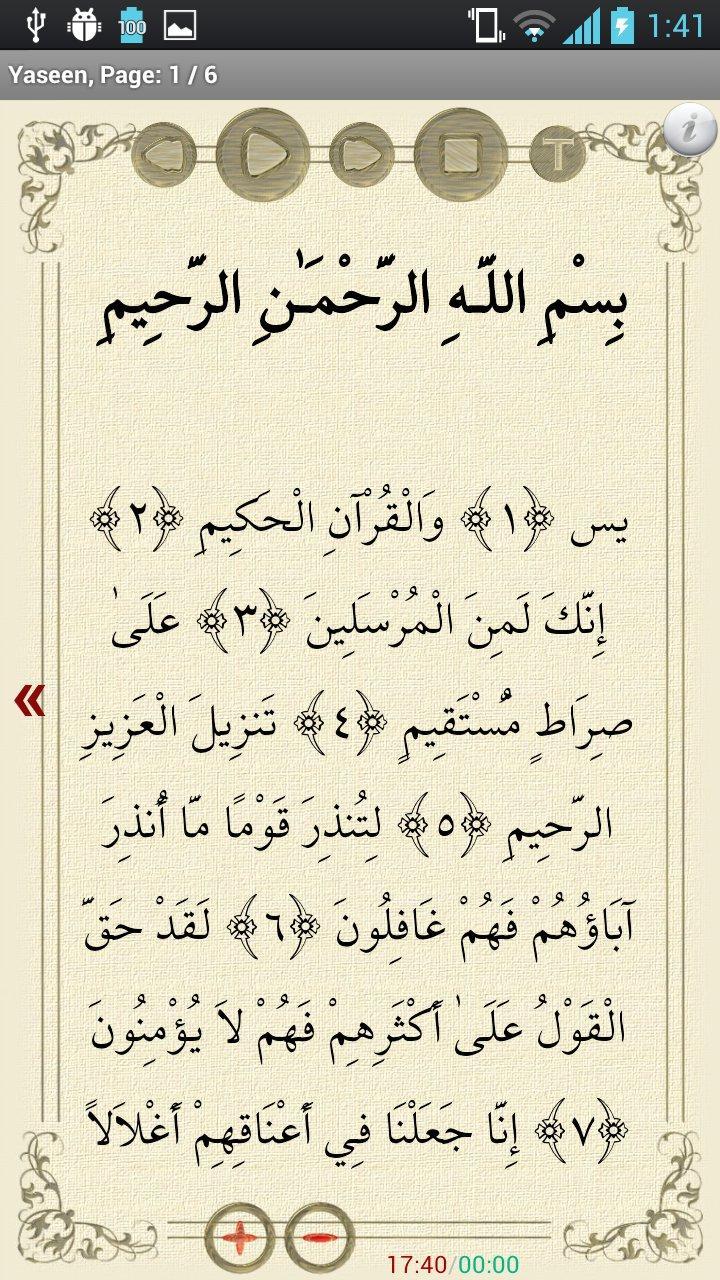 100
1:41
Yaseen, Page: 1 / 6
T
i
بِسْمِ اللَّهِ الرَّحْمَٰنِ الرَّحِيمِ
يس ﴿١﴾ وَالْقُرْآنِ الْحَكِيمِ ﴿٢﴾
إِنَّكَ لَمِنَ الْمُرْسَلِينَ ﴿٣﴾ عَلَىٰ
صِرَاطٍ مُّسْتَقِيمٍ ﴿٤﴾ تَنزِيلَ الْعَزِيزِ
الرَّحِيمِ ﴿٥﴾ لِتُنذِرَ قَوْمًا مَّا أُنذِرَ
آبَاؤُهُمْ فَهُمْ غَافِلُونَ ﴿٦﴾ لَقَدْ حَقَّ
الْقَوْلُ عَلَىٰ أَكْثَرِهِمْ فَهُمْ لاَ يُؤْمِنُونَ
﴿٧﴾ إِنَّا جَعَلْنَا فِي أَعْنَاقِهِمْ أَغْلاَلاً
«
+ −
17:40/00:00